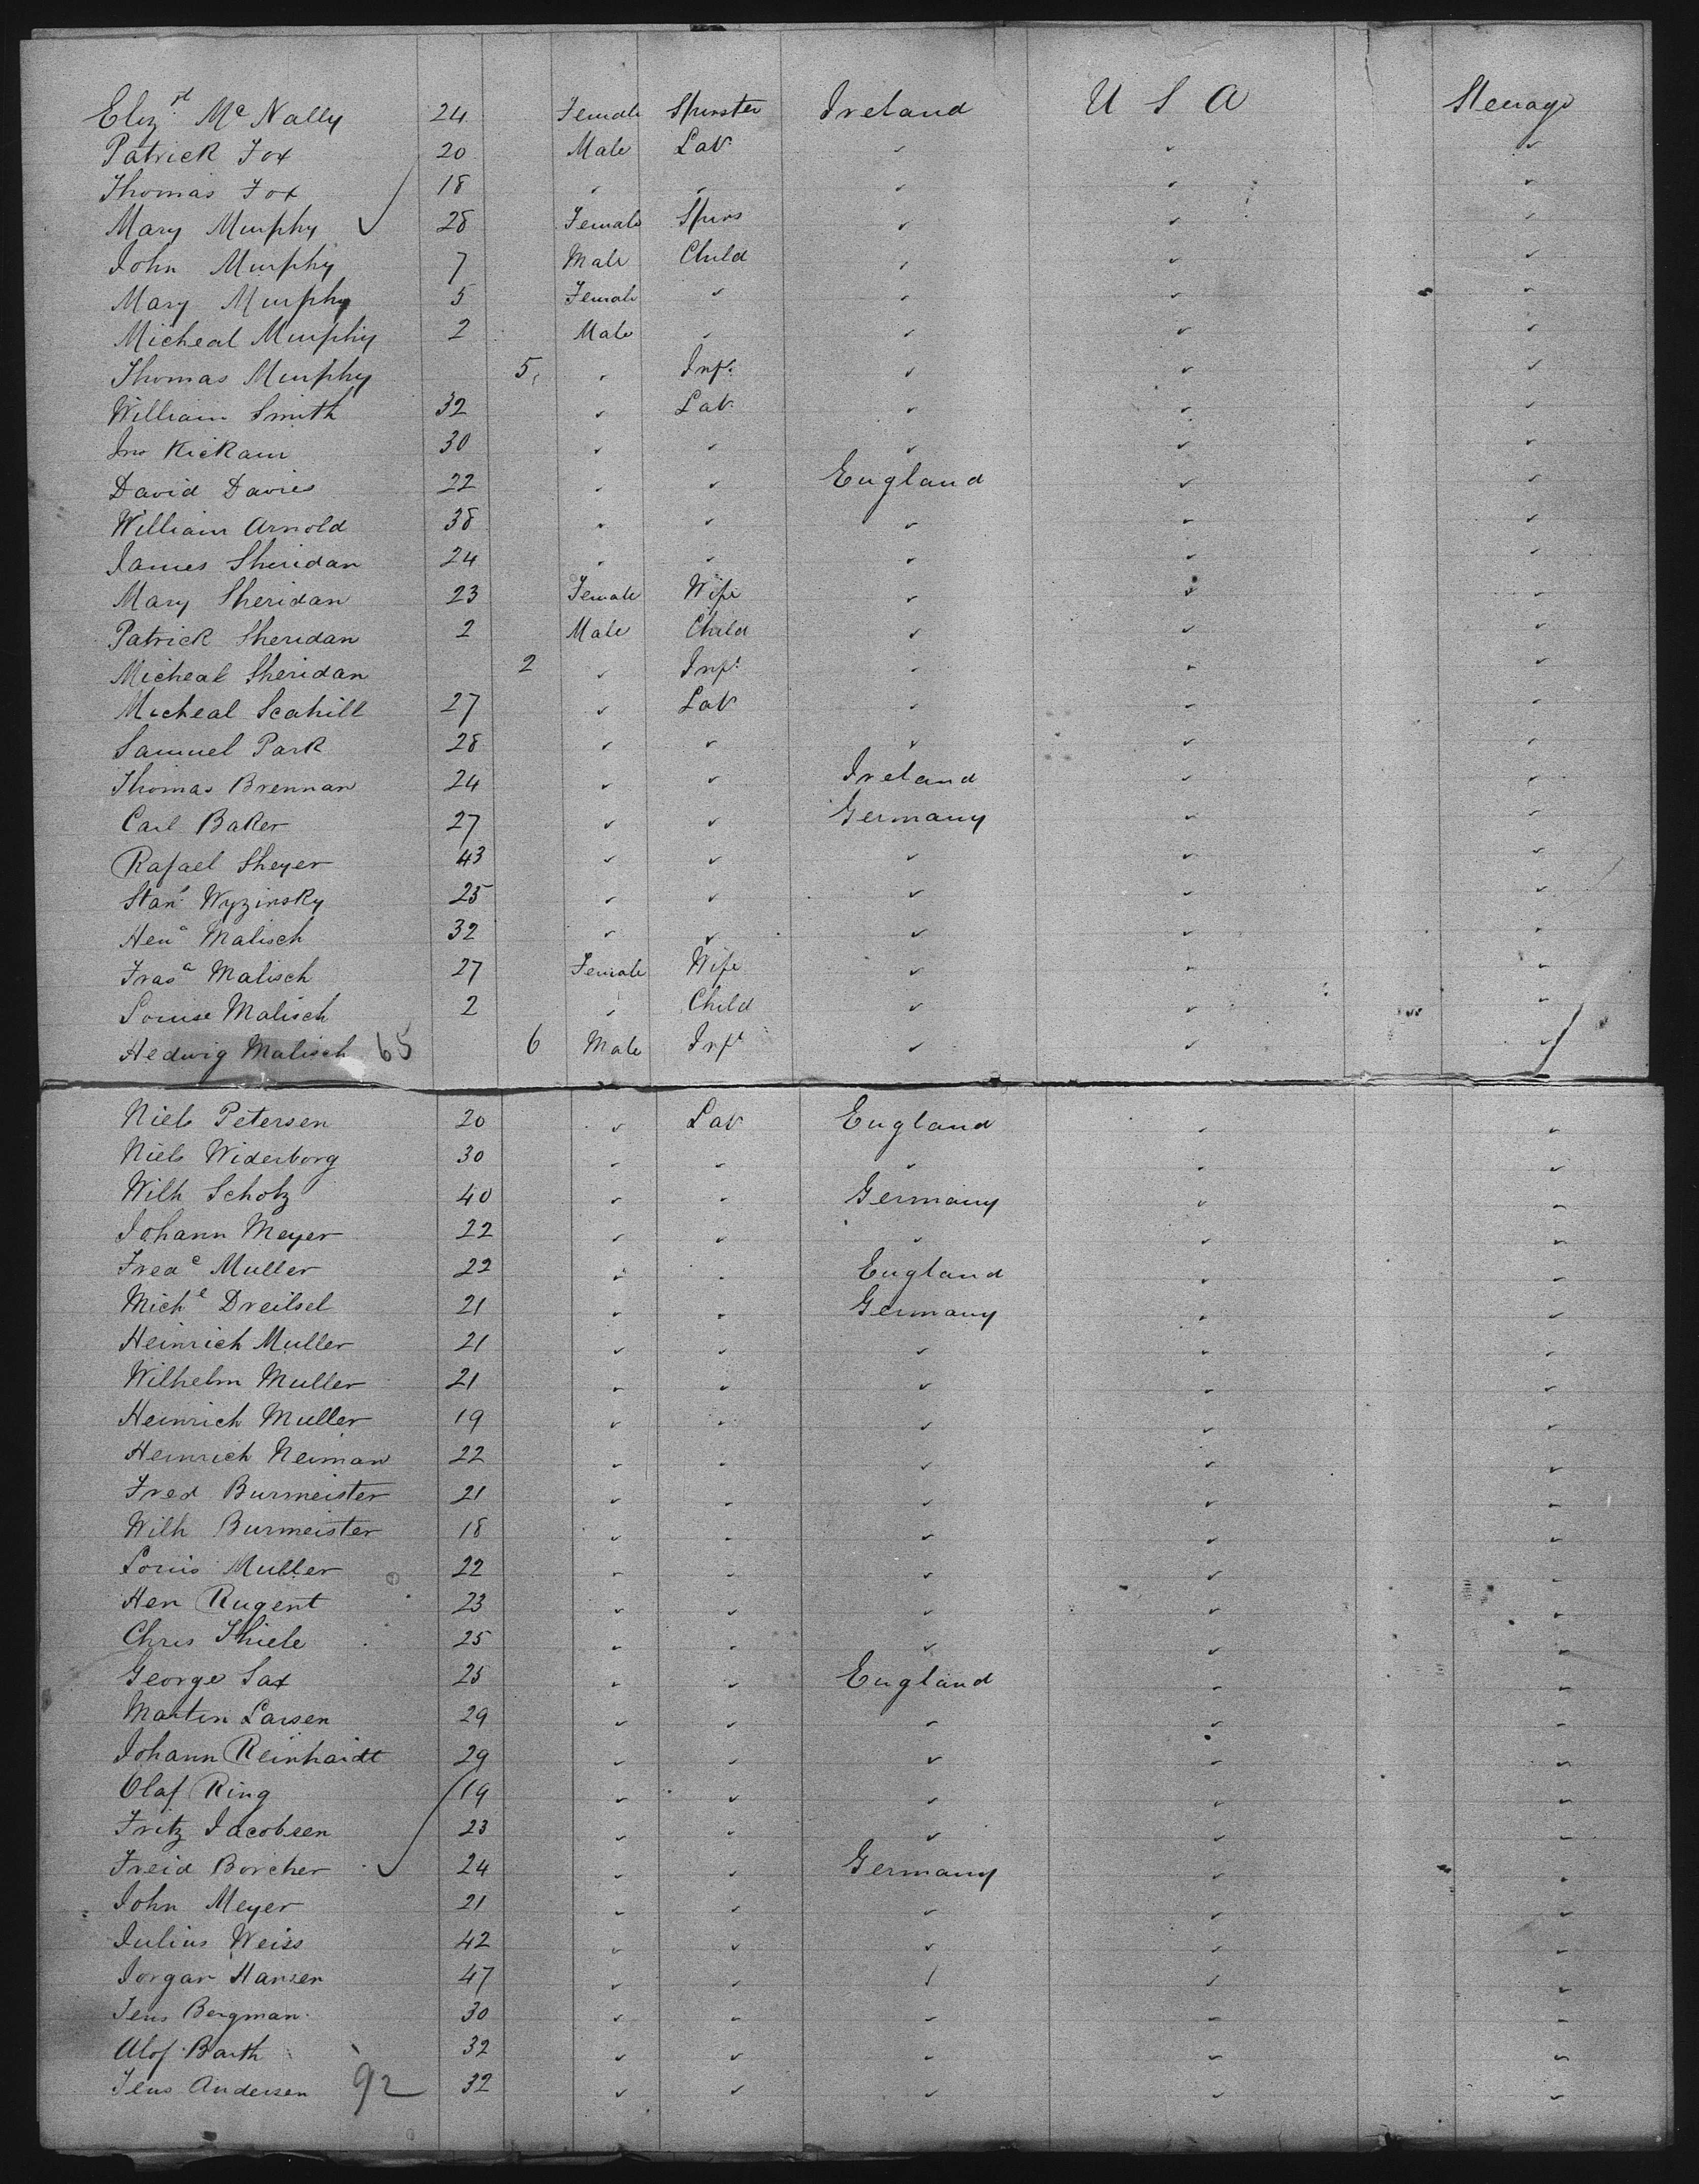 Eliz.th Mc Nally 24 Female Spinster Ireland U S A Steerage
Patrick Fox 20 Male Lab " " "
Thomas Fox 18 " " " " "
Mary Murphy 28 Female Spins " " "
John Murphy 7 Male Child " " "
Mary Murphy 5 Female " " " "
Micheal Murphy 2 Male " " " "
Thomas Murphy 5 " Inft " " "
William Smith 32 " Lab " " "
Jno Kickam 30 " " " " "
David Davies 22 " " England " "
William Arnold 38 " " " " "
James Sheridan 24 " " " " "
Mary Sheridan 23 Female Wife " " "
Patrick Sheridan 2 Male Child " " "
Micheal Sheridan 2 " Inft " " "
Micheal Scahill 27 " Lab " " "
Samuel Park 28 " " " " "
Thomas Brennan 24 " " Ireland " "
Carl Baker 27 " " Germany " "
Rafael Sheyer 43 " " " " "
Stans Wyzinsky 25 " " " " "
Hen Malisch 32 " " " " "
Frasa Malisch 27 Female Wife " " "
Louise Malisch 2 " Child " " "
Hedwig Malisch 65 6 Male Inft " " "
Niels Petersen 20 " Lab England " "
Niels Widerborg 30 " " " " "
Wilh Scholz 40 " " Germany " "
Johann Meyer 22 " " " " "
Fredc Muller 22 " " England " "
Michl Dreilsel 21 " " Germany " "
Heinrich Muller 21 " " " " "
Wilhelm Muller 21 " " " " "
Heinrich Muller 19 " " " " "
Heinrich Neiman 22 " " " " "
Fred Burmeister 21 " " " " "
Wilh Burmeister 18 " " " " "
Louis Muller 22 " " " " "
Hen Rugent 23 " " " " "
Chris Thiele 25 " " " " "
George Sax 25 " " England " "
Martin Larsen 29 " " " " "
Johann Reinhardt 29 " " " " "
Olaf Ring 19 " " " " "
Fritz Jacobsen 23 " " " " "
Freid Borcher 24 " " Germany " "
John Meyer 21 " " " " "
Julius Weiss 42 " " " " "
Jorgan Hansen 47 " " " " "
Jens Bergman 30 " " " " "
Olof Barth 32 " " " " "
Jens Andersen 92 32 " " " " "